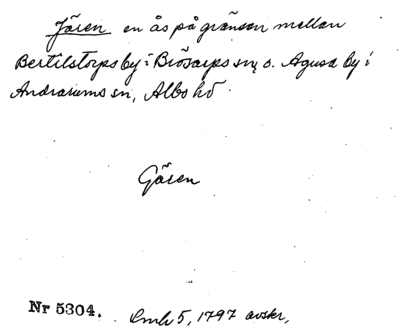 Jären en ås på gränsen mellan
Bertilstorps by i Brösarps sn, o. Agusa by i
Andrarums sn, Albo hd
Gären
Nr 5304. Lmh 5, 1797 avskr,